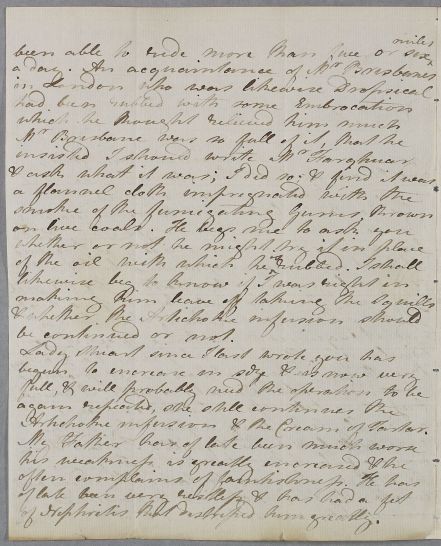 miles
been able to ride more than five or six
a day. An acquaintance of Mr Brisbanes
in London who was likewise Dropsical
had been rubbed with some Embrocation
which he thought relieved him much
Mr Brisbane was so full of it, that he
insisted I should write Mr Farquhar
& ask what it was; I did so; & find it was
a flannel cloth impregnated with the
smoke of the fumigating Gums, thrown
on live coals. He begs me to ask you
whether or not he might try it in place
of the oil with which he rubbed. I shall
likewise beg to know if I was right in
making him leave off taking the Squills
& whether the Artichoke infusion should
be continued or not.
Lady Stuart since I last wrote you has
begun to increase in size & is now very
full, & will probably need the operation to be
again repeated, she still continues the
Artichoke infusion & the Cream of Tartar.
My Father has of late been much worse
his weakness is greatly increased & he
often complains of faintishness. He has
of late been very restless, & has had a fit
of Nephritis that distressed him greatly.